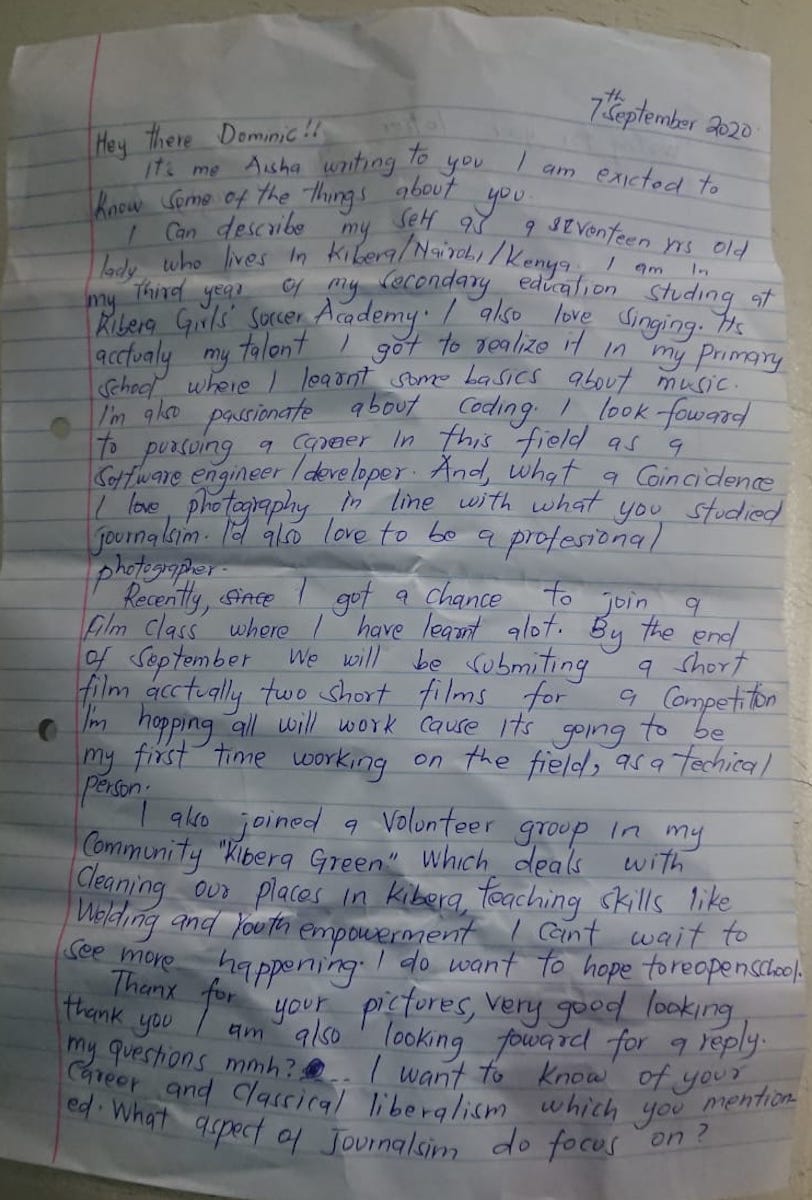 7th September 2020.
Hey there Dominic!!
Its me Aisha writing to you I am exicted to
Know some of the things about you.
I Can describe my self as a seventeen yrs old
lady who lives in Kibera/Nairobi/Kenya. I am in
my Third year of my secondary education studing at
Kibera Girls' Soccer Academy. I also love singing. Its
acctualy my talent I got to realize it in my primary
school where I learnt some basics about music.
I'm also passionate about Coding. I look foward
to pursuing a career in this field as a
Software engineer/developer. And, what a Coincidence
I love photography in line with what you studied
journalsim. I'd also love to be a profesional
photographer.
Recently, since I got a chance to join a
film class where I have learnt alot. By the end
of September We will be submiting a short
film acctually two short films for a Competiton
I'm hopping all will work cause its going to be
my first time working on the field, as a techical
person.
I also joined a Volunteer group in my
Community "Kibera Green" Which deals with
Cleaning our places in Kibera, teaching skills like
Welding and Youth empowerment I cant wait to
see more happening. I do want to hope to reopen school.
Thanx for your pictures, very good looking
thank you I am also looking foward for a reply.
my questions mmh? ... I want to know of your
Career and Classical liberalism which you mention-
ed. What aspect of Journalsim do focus on?